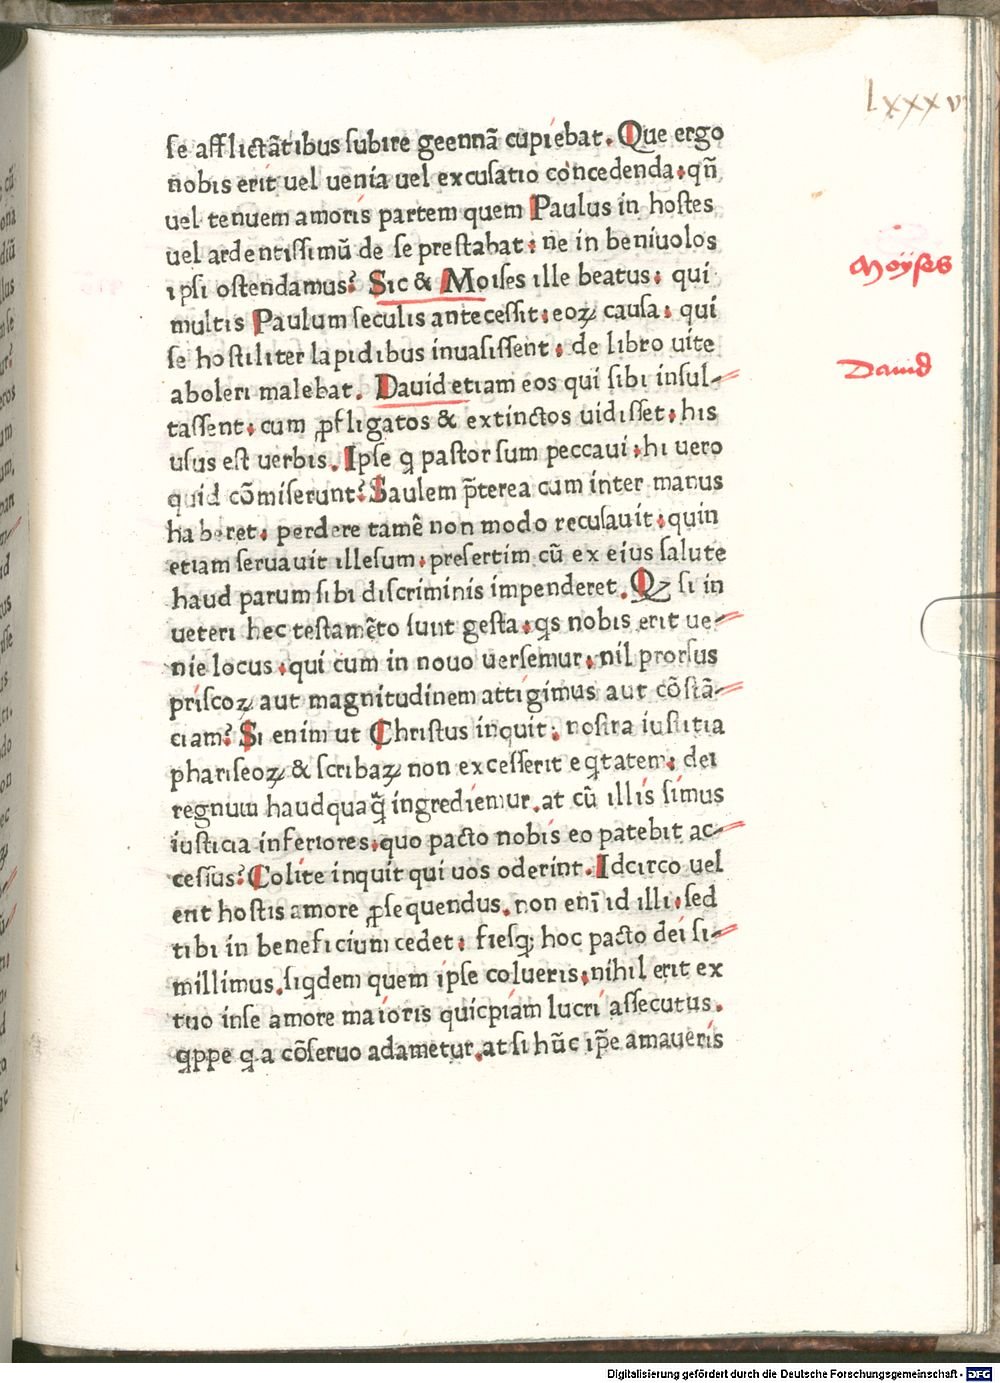 lxxxv
se afflictãtibus subire geennã cupiebat. Que ergo
nobis erit uel uenia uel excusatio concedenda: qñ
uel tenuem amoris partem quem Paulus in hostes
uel ardentissimũ de se prestabat: ne in beniuolos
ipsi ostendamus? Sic & Moises ille beatus: qui
Moyses
multis Paulum seculis antecessit: eoꝝ causa: qui
se hostiliter lapidibus inuasissent: de libro uite
Dauid
aboleri malebat. Dauid etiam eos qui sibi insul-
tassent: cum ꝓfligatos & extinctos uidisset: his
usus est uerbis. Ipse ꝗ pastor sum peccaui: hi uero
quid cõmiserunt? Saulem p̃terea cum inter manus
haberet: perdere tamẽ non modo recusauit: quin
etiam seruauit illesum: presertim cũ ex eius salute
haud parum sibi discriminis impenderet. Qꝫ si in
ueteri hec testamẽto sunt gesta: ꝗs nobis erit ue-
nie locus: qui cum in nouo uersemur: nil prorsus
priscoꝝ aut magnitudinem attigimus aut cõstã-
ciam? Si enim ut Christus inquit: nostra iustitia
phariseoꝝ & scribaꝝ non excesserit eꝗtatem: dei
regnum haudquaꝗ̃ ingrediemur. at cũ illis simus
iusticia inferiores: quo pacto nobis eo patebit ac-
cessus? Colite inquit qui uos oderint. Idcirco uel
erit hostis amore ꝓsequendus. non eni̅ id illi: sed
tibi in beneficium cedet: fiesꝗ; hoc pacto dei si-
millimus. siꝗdem quem ipse colueris: nihil erit ex
tuo inse amore maioris quicpiam lucri assecutus.
ꝗppe ꝗ a cõseruo adametur. at si hũc ip̃e amaueris
Digitalisierung gefördert durch die Deutsche Forschungsgemeinschaft - DFG